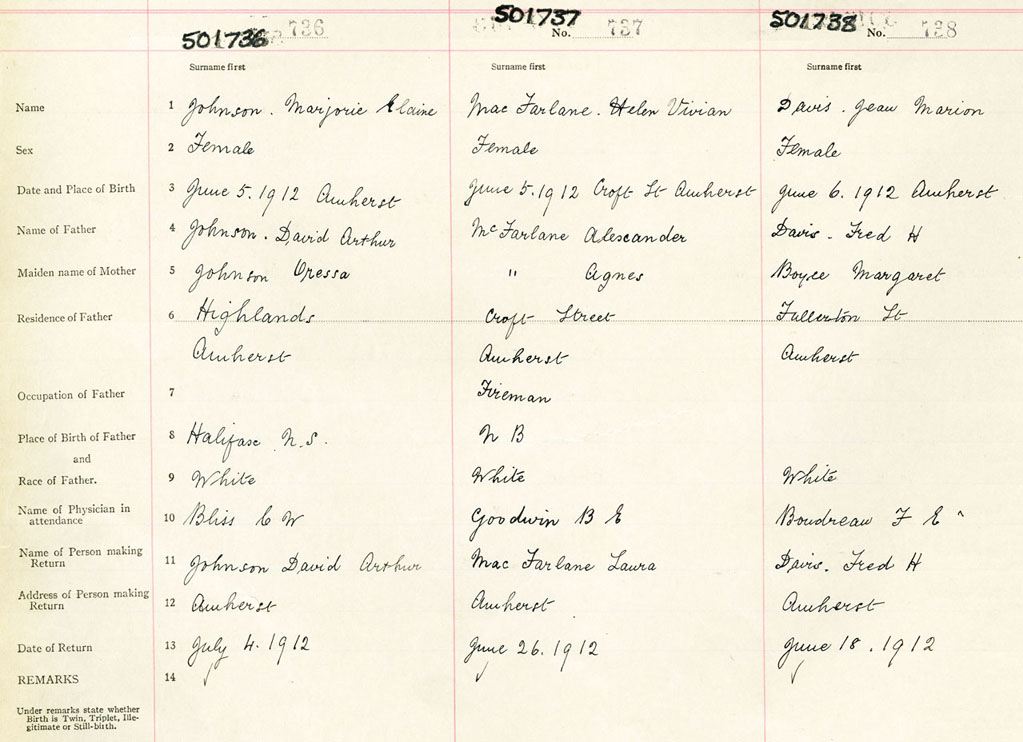 501736 736 501737 No. 737 501738 No. 738
Surname first Surname first Surname first
Name 1 Johnson. Marjorie Elaine Mac Farlane. Helen Vivian Davis. Jean Marion
Sex 2 Female Female Female
Date and Place of Birth 3 June 5. 1912 Amherst June 5. 1912 Croft St Amherst June 6. 1912 Amherst
Name of Father 4 Johnson. David Arthur McFarlane Alexander Davis - Fred H
Maiden name of Mother 5 Johnson Oressa " Agnes Boyce Margaret
Residence of Father 6 Highlands Croft Street Fullerton St
Amherst Amherst Amherst
Occupation of Father 7 Fireman
Place of Birth of Father 8 Halifax N.S. N B
and
Race of Father. 9 White White White
Name of Physician in
attendance 10 Bliss C W Goodwin B E Boudreau F E
Name of Person making
Return 11 Johnson David Arthur Mac Farlane Laura Davis. Fred H
Address of Person making
Return 12 Amherst Amherst Amherst
Date of Return 13 July 4. 1912 June 26. 1912 June 18. 1912
REMARKS 14
Under remarks state whether
Birth is Twin, Triplet, Ille-
gitimate or Still-birth.